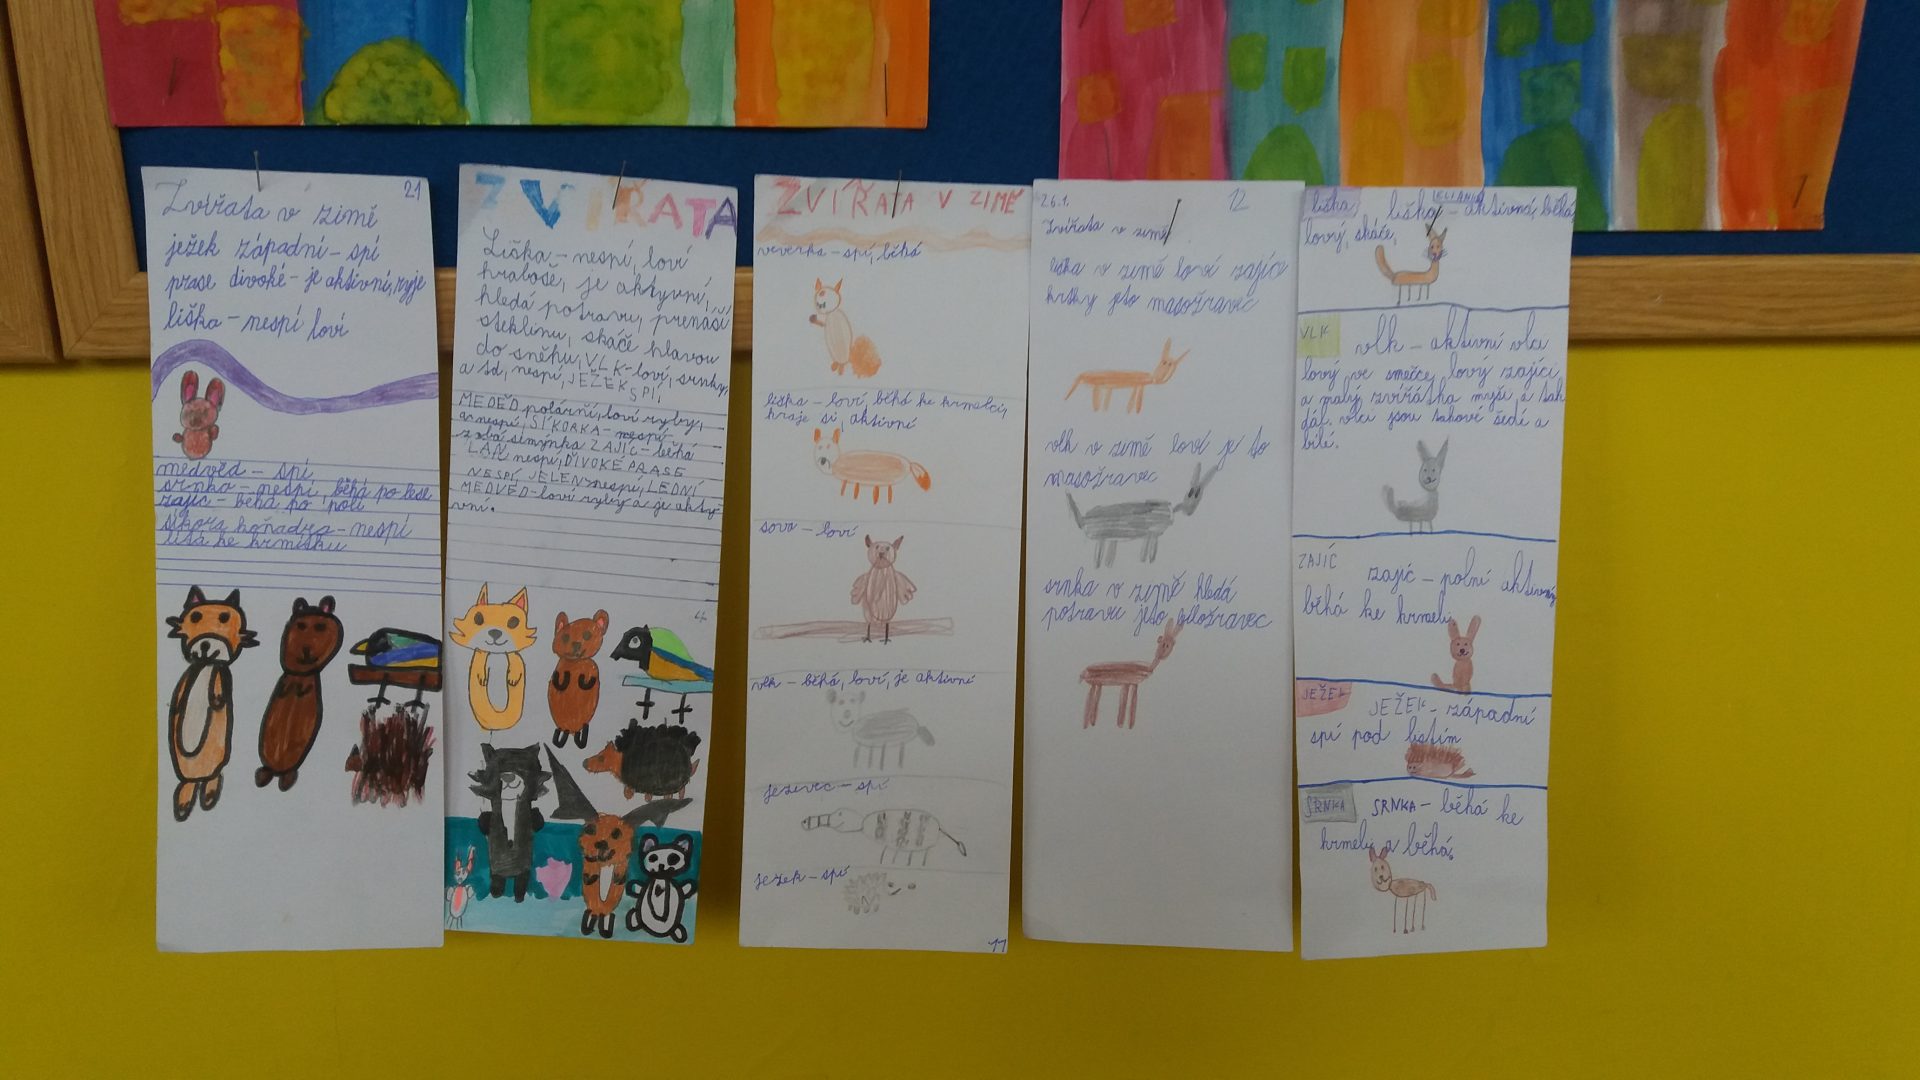 21
Zvířata v zimě
ježek západní – spí
prase divoké – je aktivní, ryje
liška – nespí loví
medvěd – spí
srnka – nespí, běhá po lese
zajíc – běhá po poli
sikora koňadra – nespí
lítá ke krmítku
ZVÍŘATA
Liška – nespí, loví
hraboše, je aktyvní,
hledá potravu, přenáší
steklinu, skáče hlavou
do sněhu, VLK – loví, srnky,
a td, nespí, JEŽEK SPI,
MEDĚD polární, loví ryby,
a nespí, SÍKORKA – nespí
zobá semýnka ZAJÍC – běhá
LAŇ nespí, DIVOKÉ PRASE
NESPÍ, JELEN nespí, LEDNÍ
MEDVĚD – loví ryby a je akty-
vní.
4
ZVÍŘATA V ZIMĚ
veverka – spí, běhá
liška – loví, běhá ke krmelci,
hraje si, aktivní
sova – loví
vlk – běhá, loví, je aktivní
jezevec – spí
ježek – spí
11
26.1.
12
Zvířata v zimě
liška v zimě loví zajíce
krtky jeto masožravec
vlk v zimě loví je to
masožravec
srnka v zimě hledá
potravu jeto bíložravec
liška
liška – aktivná, běhá,
lový, skáče,
VLK
vlk – aktivní vlci
lový ve smečce, lový zajíci,
a malý zvířátka myši a tak
dál. vlci jsou takové šedí a
bílí.
ZAJÍC
zajíc – polní aktivní
běhá ke krmeli,
JEŽEK
JEŽEK – západní
spí pod listím
SRNKA
SRNKA – běhá ke
krmeli a běhá.